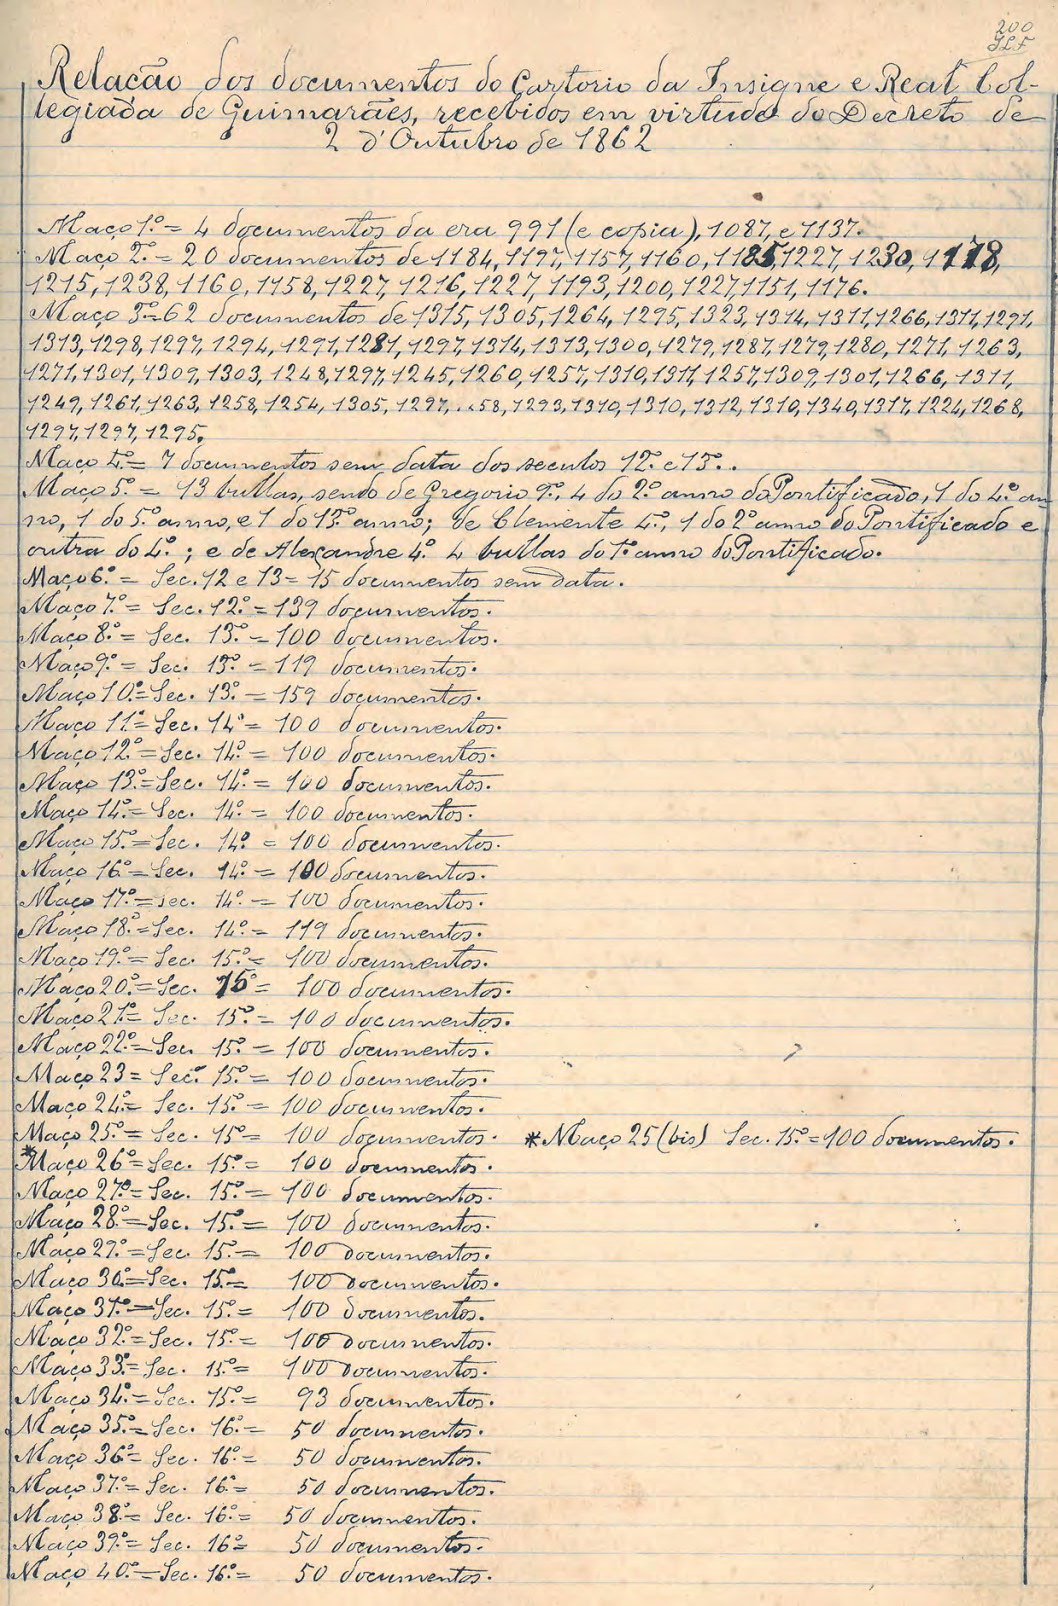 200
Relação dos documentos do Cartorio da Insigne e Real Col-
legiada de Guimarães, recebidos em virtude do Decreto de
2 d'Outubro de 1862
Maço 1º = 4 documentos da era 991 (e copia), 1087, e 1137.
Maço 2º = 20 documentos de 1184, 1197, 1157, 1160, 1185, 1227, 1230, 1178,
1215, 1238, 1160, 1158, 1227, 1216, 1227, 1193, 1200, 1227, 1151, 1176.
Maço 3º = 62 documentos de 1315, 1305, 1264, 1295, 1323, 1314, 1311, 1266, 1311, 1291,
1313, 1298, 1297, 1294, 1291, 1281, 1297, 1314, 1313, 1300, 1279, 1287, 1279, 1280, 1271, 1263,
1271, 1301, 1309, 1303, 1248, 1297, 1245, 1260, 1257, 1310, 1311, 1257, 1309, 1301, 1266, 1311,
1249, 1261, 1263, 1258, 1254, 1305, 1297, 58, 1293, 1310, 1310, 1312, 1310, 1340, 1317, 1224, 1268,
1297, 1297, 1295.
Maço 4º = 7 documentos sem data dos seculos 12º e 13º.
Maço 5º = 13 bullas, sendo de Gregorio 9º, 4 do 2º anno do Pontificado, 1 do 4º an-
no, 1 do 5º anno, e 1 do 13º anno; de Clemente 4º, 1 do 2º anno do Pontificado e
outra do 4º; e de Alexandre 4º 4 bullas do 1º anno do Pontificado.
Maço 6º = Sec. 12 e 13 = 15 documentos sem data.
Maço 7º = Sec. 12º = 139 documentos.
Maço 8º = Sec. 13º = 100 documentos.
Maço 9º = Sec. 13º = 119 documentos.
Maço 10º = Sec. 13º = 159 documentos.
Maço 11º = Sec. 14º = 100 documentos.
Maço 12º = Sec. 14º = 100 documentos.
Maço 13º = Sec. 14º = 100 documentos.
Maço 14º = Sec. 14º = 100 documentos.
Maço 15º = Sec. 14º = 100 documentos.
Maço 16º = Sec. 14º = 100 documentos.
Maço 17º = Sec. 14º = 100 documentos.
Maço 18º = Sec. 14º = 119 documentos.
Maço 19º = Sec. 15º = 100 documentos.
Maço 20º = Sec. 15º = 100 documentos.
Maço 21º = Sec. 15º = 100 documentos.
Maço 22º = Sec. 15º = 100 documentos.
Maço 23 = Sec. 15º = 100 documentos.
Maço 24º = Sec. 15º = 100 documentos.
Maço 25º = Sec. 15º = 100 documentos. * Maço 25 (bis) Sec. 15º = 100 documentos.
*Maço 26º = Sec. 15º = 100 documentos.
Maço 27º = Sec. 15º = 100 documentos.
Maço 28º = Sec. 15º = 100 documentos.
Maço 29º = Sec. 15º = 100 documentos.
Maço 30º = Sec. 15º = 100 documentos.
Maço 31º = Sec. 15º = 100 documentos.
Maço 32º = Sec. 15º = 100 documentos.
Maço 33º = Sec. 15º = 100 documentos.
Maço 34º = Sec. 15º = 93 documentos.
Maço 35º = Sec. 16º = 50 documentos.
Maço 36º = Sec. 16º = 50 documentos.
Maço 37º = Sec. 16º = 50 documentos.
Maço 38º = Sec. 16º = 50 documentos.
Maço 39º = Sec. 16º = 50 documentos.
Maço 40º = Sec. 16º = 50 documentos.